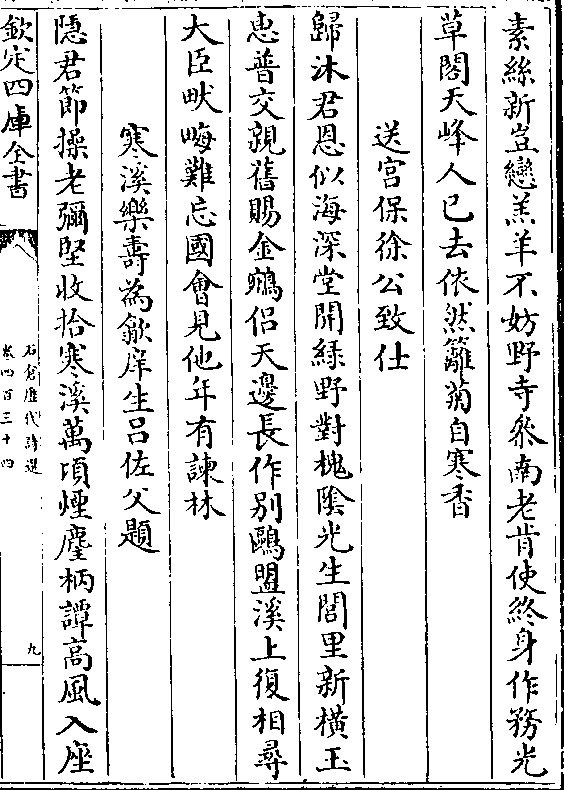 素絲新豈戀羔羊不妨野寺參南老肯使終身作務光
草閣天峰人已去依然籬菊自寒香
送宫保徐公致仕
歸沐君恩似海深堂開緑野對槐陰光生閭里新横玉
惠普交親舊賜金鵷侣天邊長作别鷗盟溪上復相尋
大臣畎畮難忘國會見他年有諫林
寒溪樂壽為歙庠生吕佐父題
隠君節操老彌堅收拾寒溪萬頃煙麈柄譚高風入座
欽定四庫全書
石倉歴代詩選
卷四百三十四
九